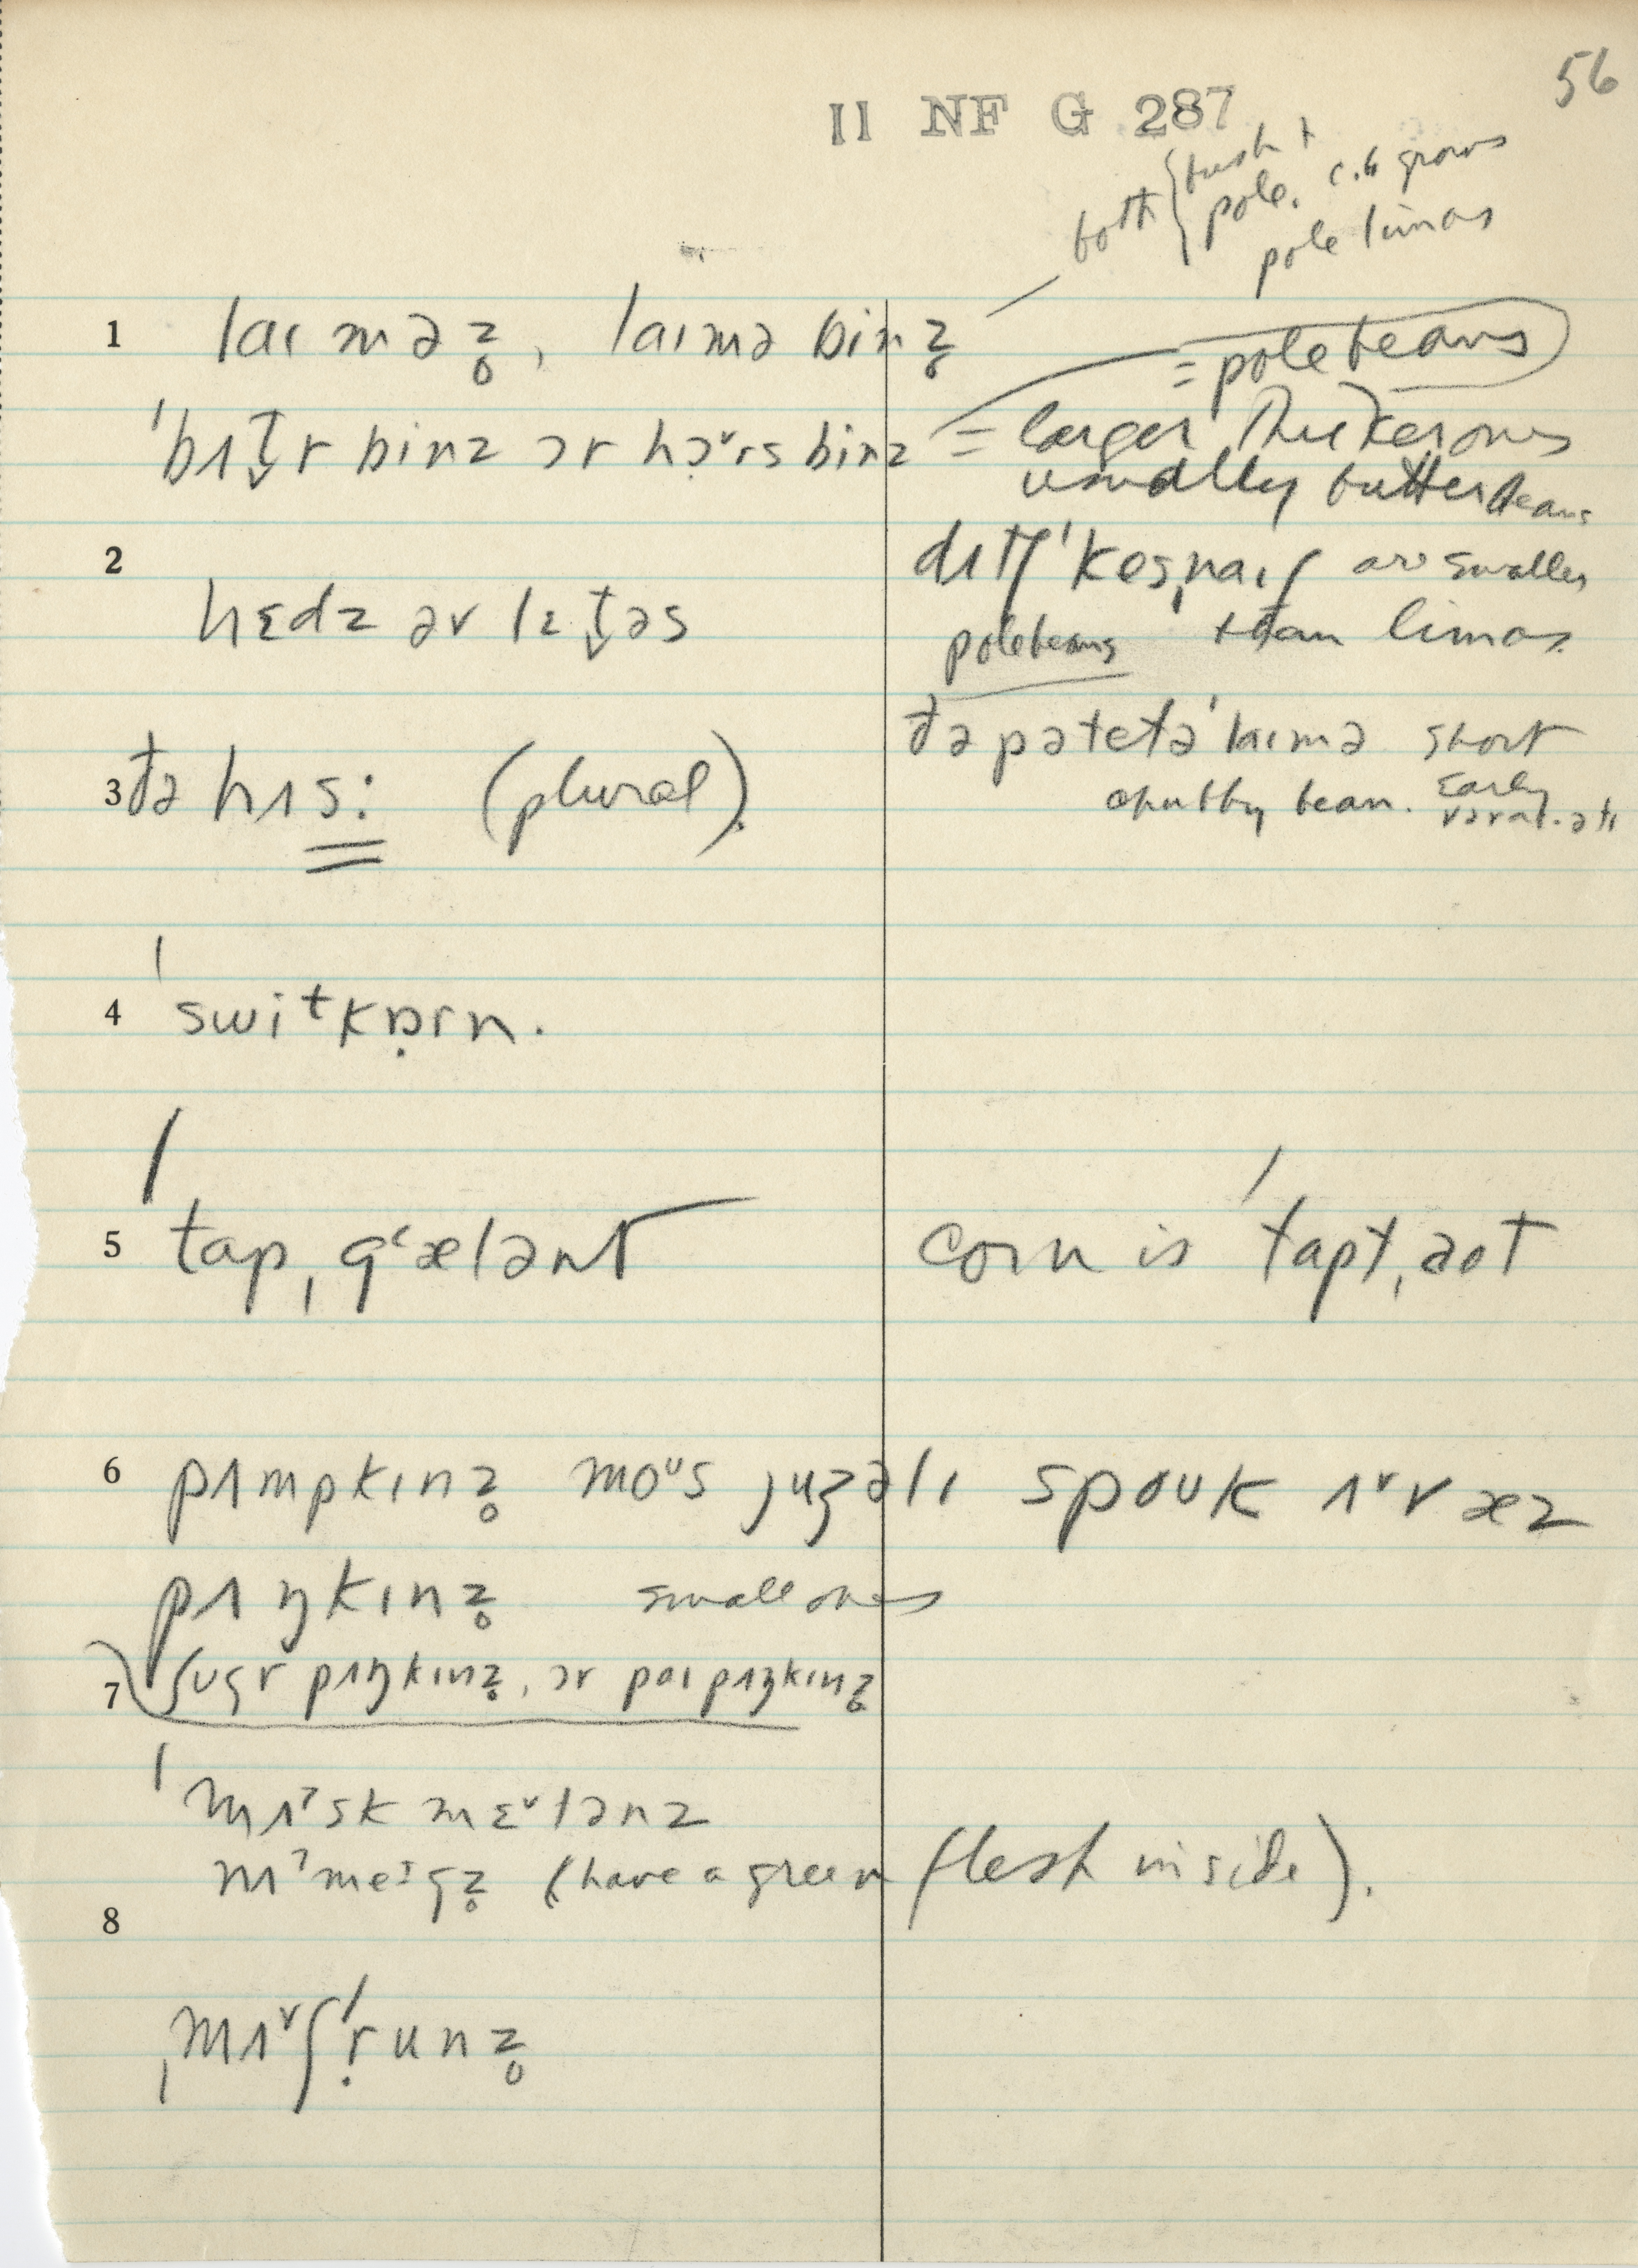 56
II NF G 287
both { bush +
pole. c.b grows
pole limas
1 laɪməz̥, laɪmə binz̥
= pole beans
ˈbʌt̬r binz ɔr hɔ˅rs binz = larger thicker ones
usually butter beans
2 hɛdz əv lɛt̬əs
ˈkeṣˌnaɪf are smaller
polebeans than limas.
3 ðə hʌs: (plural).
ðə pətetəˈlaɪmə short
chubby bean. Early
4 ˈswitkɒ̣rn.
5 ˈtapˌgʻælənt
corn is ˈtaptˌaot
6 pʌmpkɪnz̥ moᵘs juʒəlɪ spouk ʌ˅v æz
pʌŋkɪnz̥ small ones
7 ʃʊgr pʌŋkɪnz̥, ɔr paɪ pʌŋkɪnz̥
ˈmʌˀsk mɛ˅lənz
(have a green flesh inside).
8
ˌmʌ˅ʃˈṛunz̥